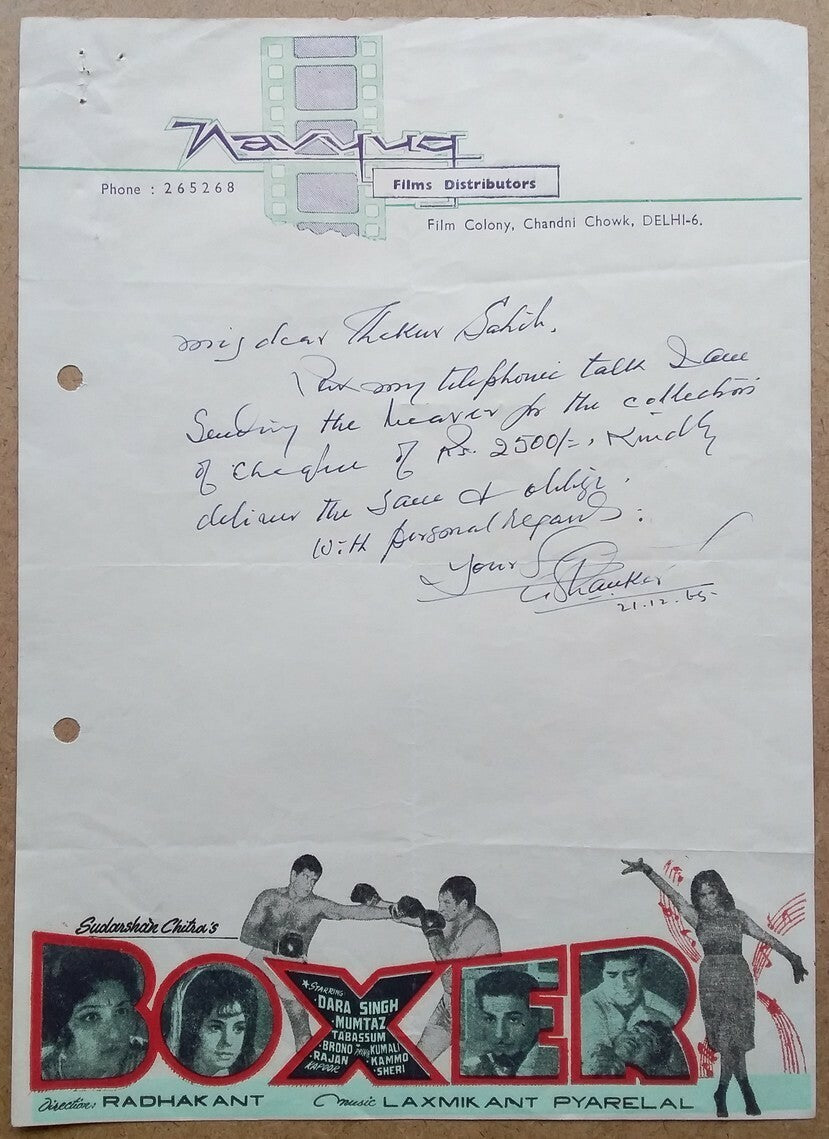 Navyug
Films Distributors
Phone : 265268
Film Colony, Chandni Chowk, DELHI-6.
my dear Thakur Sahib,
Per my telephonic talk I am
Sending the bearer for the collection
of cheque of Rs. 2500/-. Kindly
deliver the same & oblige.
With personal regards:
Yours
Shanker
21.12.65
Sudarshan Chitra's
BOXER
*STARRING
·DARA SINGH
·MUMTAZ
·TABASSUM
·BRONO KUMALI
·RAJAN KAPOOR ·KAMMO
·SHERI
Direction: RADHAKANT
Music LAXMIKANT PYARELAL